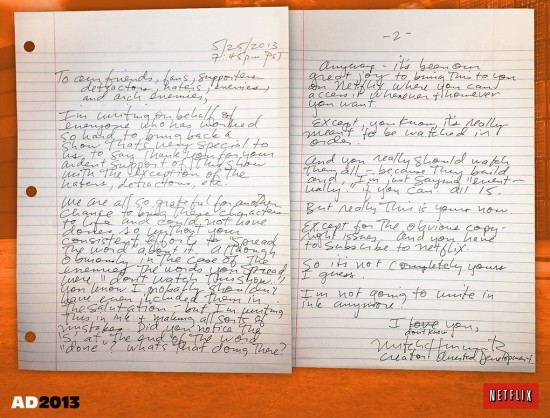 5/25/2013
7:45pm PST
To our friends, fans, supporters
detractors, haters, enemies,
and arch enemies,
I'm writing on behalf of
everyone who has worked
so hard to bring back a
show that's very special to
us, to say thank you for your
ardent support of the show
with the exception of the
haters, detractors, etc.
We are all so grateful for another
chance to bring these characters
to life and could not have
dones, so without your
consistent efforts to spread
the word about it. Although
obviously in the case of the
enemies the words you spread
were "don't watch this show."
You know I probably shouldn't
have even included them in
the salutation - but I'm writing
this in ink & making all sorts of
mistakes. Did you notice the
'S' at the end of the word
"done"? What's that doing there?
-2-
Anyway - it's been our
great joy to bring this to you
on Netflix where you can
access it whenever & however
you want.
Except, you know, it's really
meant to be watched in
order.
And you really should watch
them all - because they build
and, I'm just saying "event-
ually" if you can. all 15.
But really this is yours now.
Except for the obvious copy-
right issues. And you have
to subscribe to Netflix.
So it's not completely yours
I guess.
I'm not going to write in
ink anymore!
I love you,
don't know
Mitch Hurwitz
Creator Arrested Development
AD2013
NETFLIX